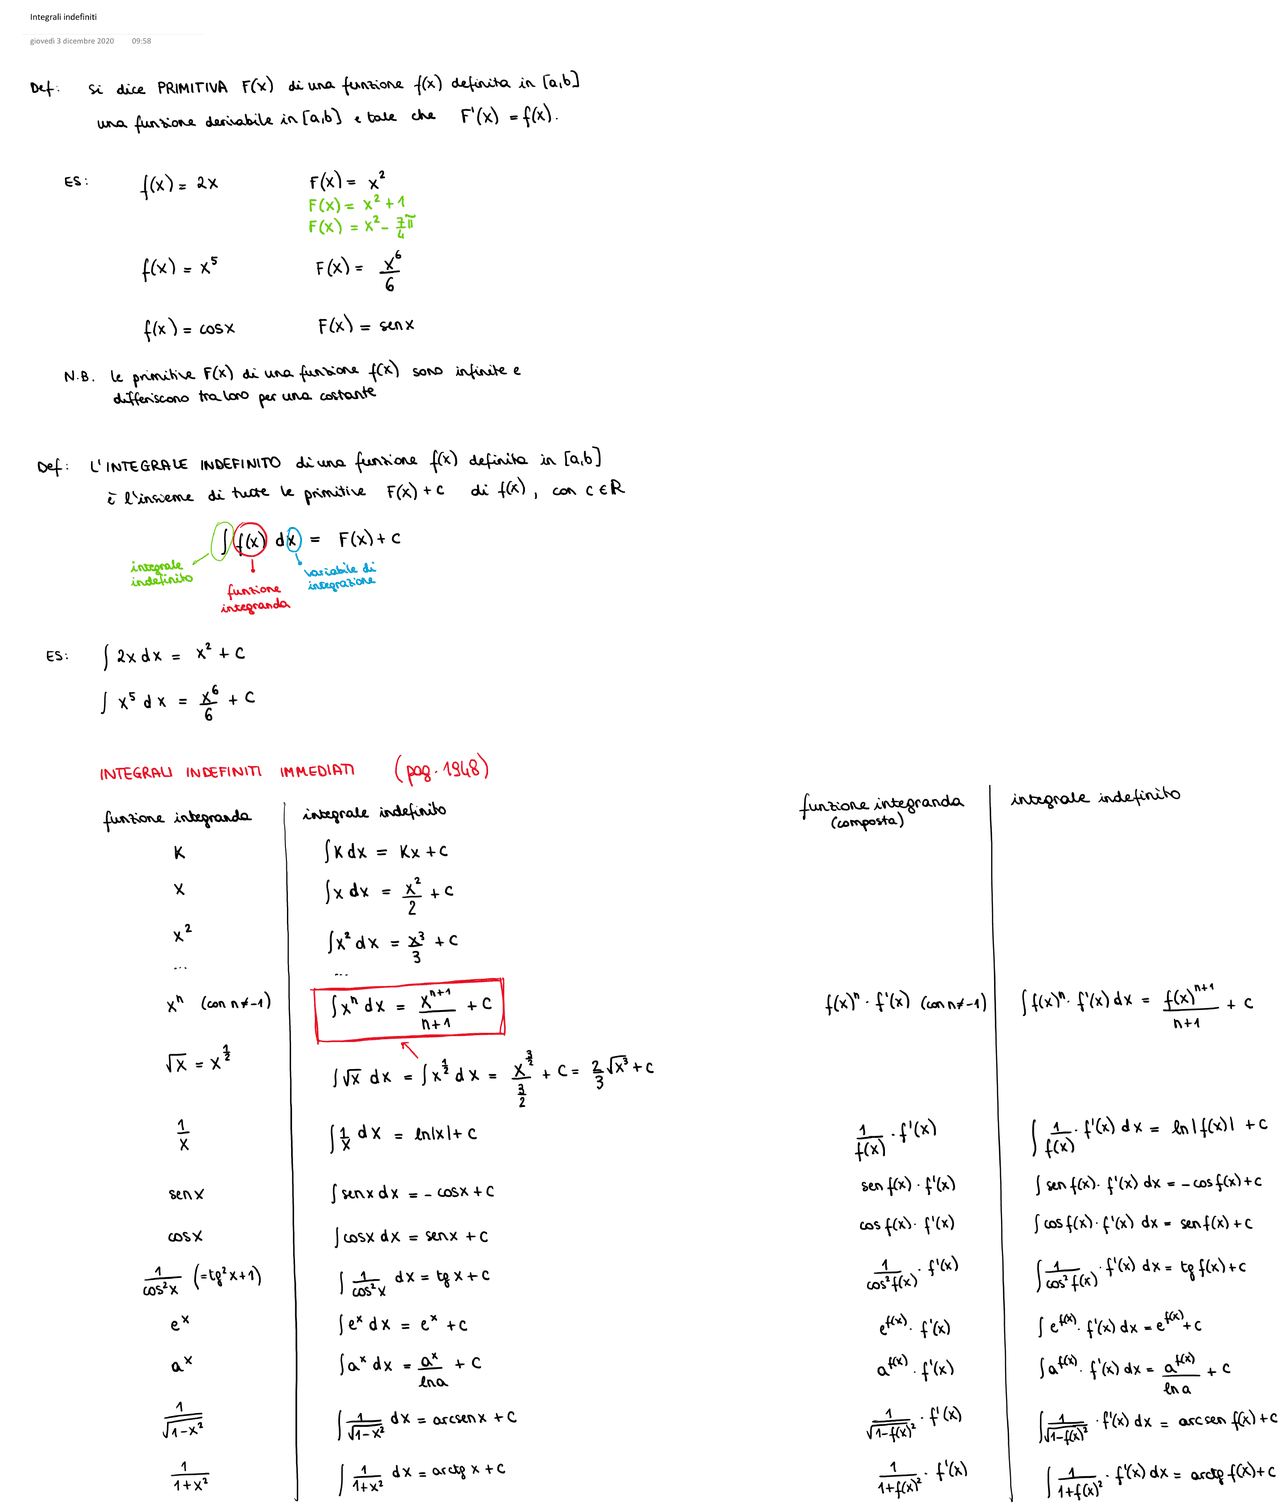 Integrali indefiniti
giovedì 3 dicembre 2020 09:58
Def: Si dice PRIMITIVA F(x) di una funzione f(x) definita in [a,b]
una funzione derivabile in [a,b] e tale che F'(x) = f(x).
ES: f(x) = 2x F(x) = x²
F(x) = x² + 1
F(x) = x² - 7/4 π
f(x) = x⁵ F(x) = x⁶/6
f(x) = cosx F(x) = senx
N.B. le primitive F(x) di una funzione f(x) sono infinite e
differiscono tra loro per una costante
Def: L'INTEGRALE INDEFINITO di una funzione f(x) definita in [a,b]
è l'insieme di tutte le primitive F(x) + c di f(x), con c ∈ R
∫ f(x) dx = F(x) + c
integrale indefinito
funzione integranda
variabile di integrazione
ES: ∫ 2x dx = x² + c
∫ x⁵ dx = x⁶/6 + c
INTEGRALI INDEFINITI IMMEDIATI (pag. 1948)
funzione integranda integrale indefinito
K ∫K dx = Kx + c
x ∫x dx = x²/2 + c
x² ∫x² dx = x³/3 + c
... ...
xⁿ (con n≠-1) ∫xⁿ dx = xⁿ⁺¹/(n+1) + c
√x = x^(1/2) ∫√x dx = ∫x^(1/2) dx = x^(3/2)/(3/2) + c = 2/3 √x³ + c
1/x ∫ 1/x dx = ln|x| + c
senx ∫senx dx = - cosx + c
cosx ∫cosx dx = senx + c
1/cos²x (=tg²x+1) ∫ 1/cos²x dx = tg x + c
eˣ ∫eˣ dx = eˣ + c
aˣ ∫aˣ dx = aˣ/lna + c
1/√(1-x²) ∫ 1/√(1-x²) dx = arcsenx + c
1/(1+x²) ∫ 1/(1+x²) dx = arctg x + c
funzione integranda (composta) integrale indefinito
f(x)ⁿ · f'(x) (con n≠-1) ∫f(x)ⁿ · f'(x) dx = f(x)ⁿ⁺¹/(n+1) + c
1/f(x) · f'(x) ∫ 1/f(x) · f'(x) dx = ln|f(x)| + c
sen f(x) · f'(x) ∫ sen f(x) · f'(x) dx = - cos f(x) + c
cos f(x) · f'(x) ∫ cos f(x) · f'(x) dx = sen f(x) + c
1/cos²f(x) · f'(x) ∫ 1/cos²f(x) · f'(x) dx = tg f(x) + c
e^f(x) · f'(x) ∫ e^f(x) · f'(x) dx = e^f(x) + c
a^f(x) · f'(x) ∫a^f(x) · f'(x) dx = a^f(x)/ln a + c
1/√(1-f(x)²) · f'(x) ∫ 1/√(1-f(x)²) · f'(x) dx = arcsen f(x) + c
1/(1+f(x)²) · f'(x) ∫ 1/(1+f(x)²) · f'(x) dx = arctg f(x) + c